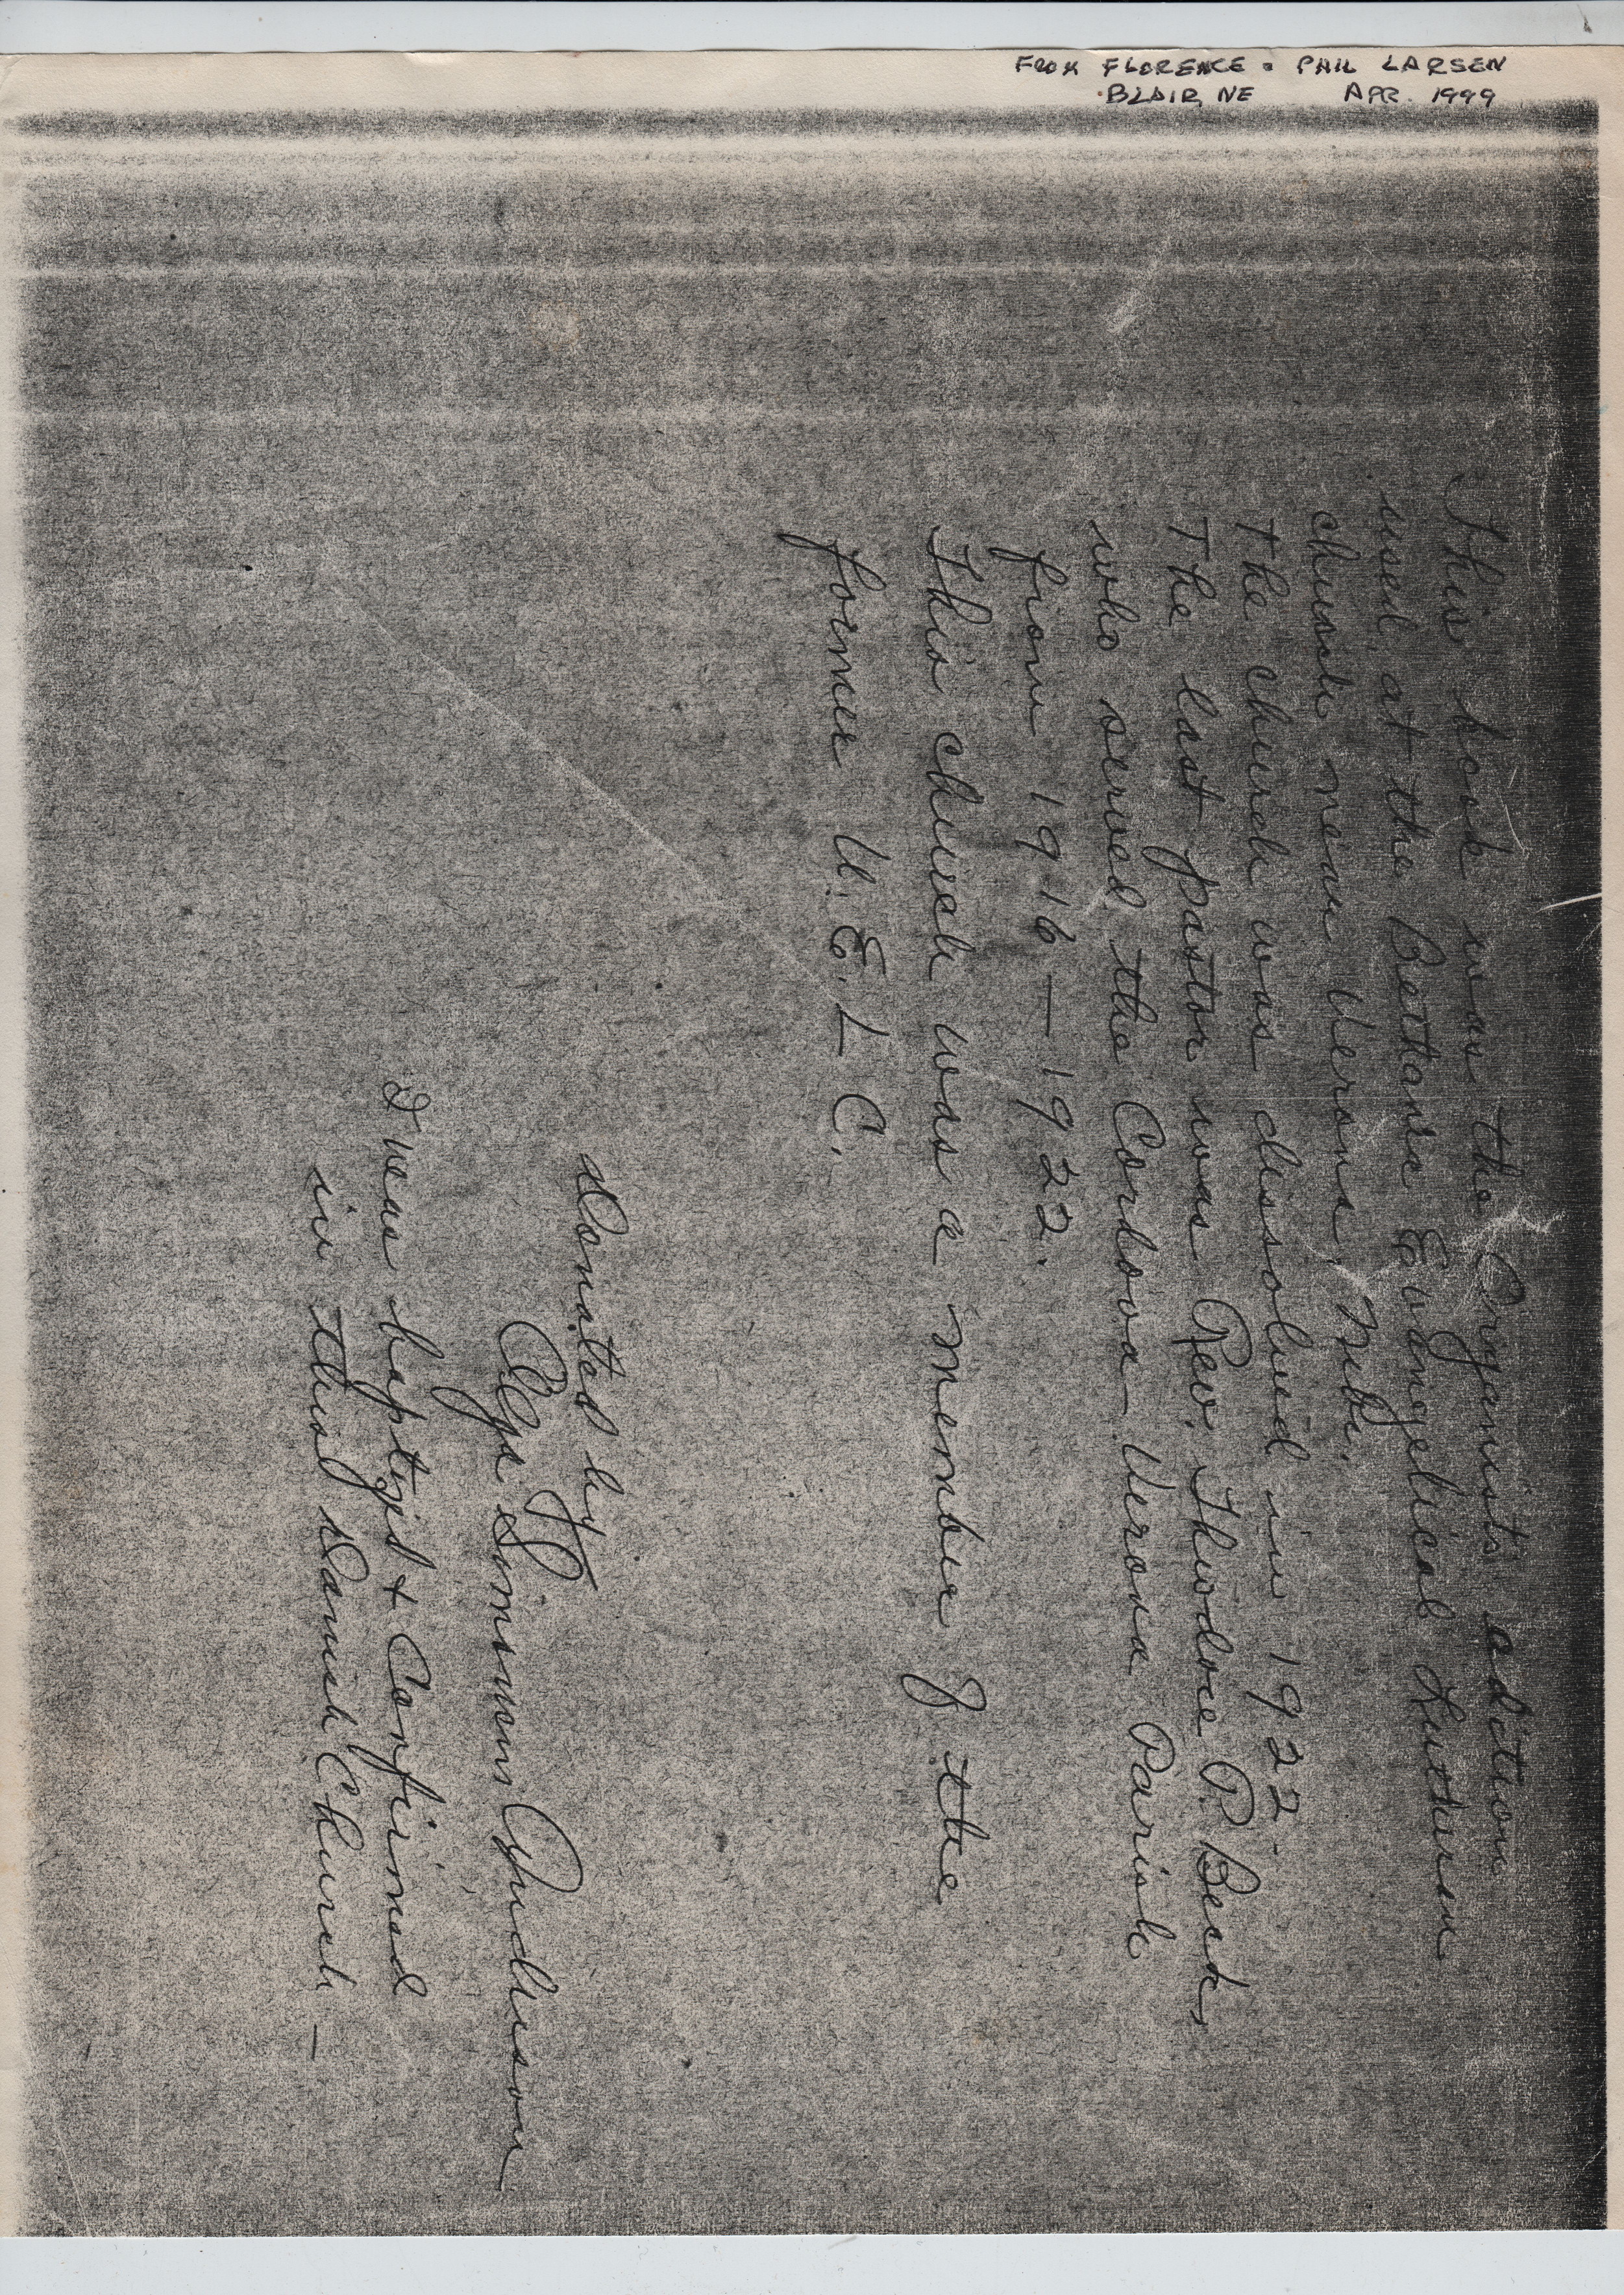 FROM FLORENCE & PHIL LARSEN
BLAIR, NE APR. 1999
This book was the Organists edition
used at the Bethania Evangelical Lutheran
church near Verona, Nebr.
The church was dissolved in 1922.
The last pastor was Rev. Theodore P. Beck,
who served the Cordova - Verona Parish
from 1916 — 1922.
This church was a member of the
former U. E. L. C.
Donated by
Simonsen
I was baptized & Confirmed
in this Danish Church —